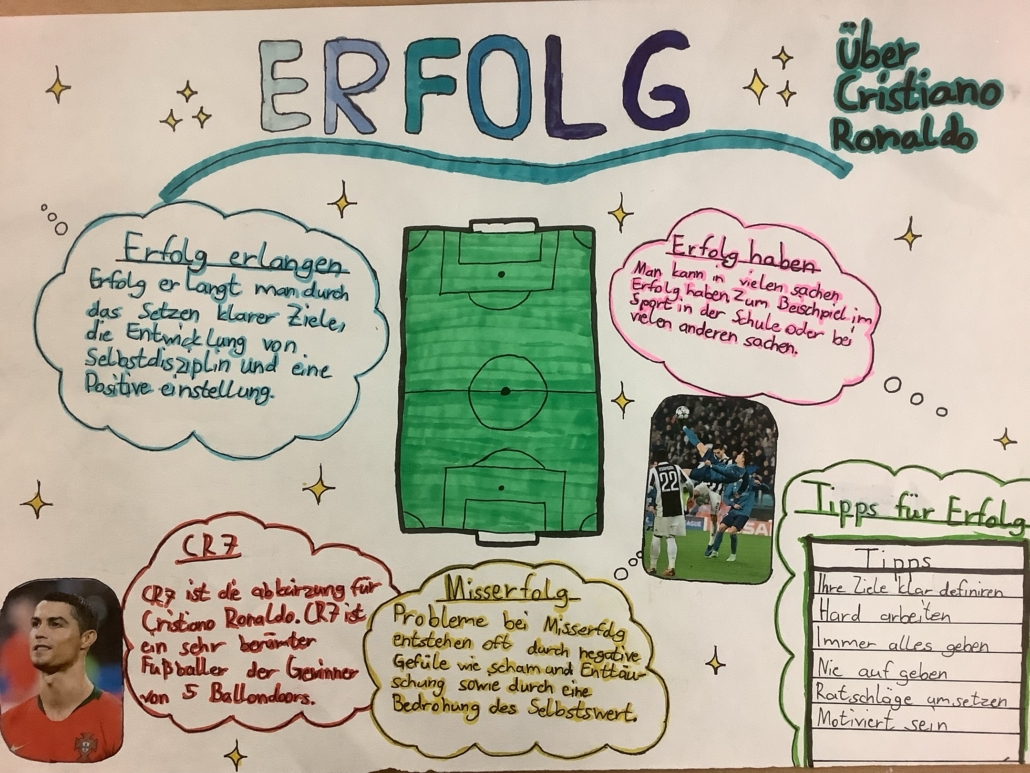 ERFOLG
Über
Cristiano
Ronaldo
Erfolg erlangen
Erfolg erlangt man durch
das Setzen klarer Ziele,
die Entwicklung von
Selbstdisziplin und eine
Positive einstellung.
Erfolg haben
Man kann in vielen sachen
Erfolg haben. Zum Beischpiel im
Sport in der Schule oder bei
vielen anderen sachen.
22
CR7
CR7 ist die abkürzung für
Cristiano Ronaldo. CR7 ist
ein sehr berümter
Fußballer der Gewinner
von 5 Ballondoors.
Misserfolg
Probleme bei Misserfolg
entstehen oft durch negative
Gefüle wie scham und Enttäu-
schung sowie durch eine
Bedrohung des Selbstswert.
Tipps für Erfolg
Tipps
Ihre Ziele klar definiren
Hard arbeiten
Immer alles geben
Nie auf geben
Ratschläge umsetzen
Motiviert sein